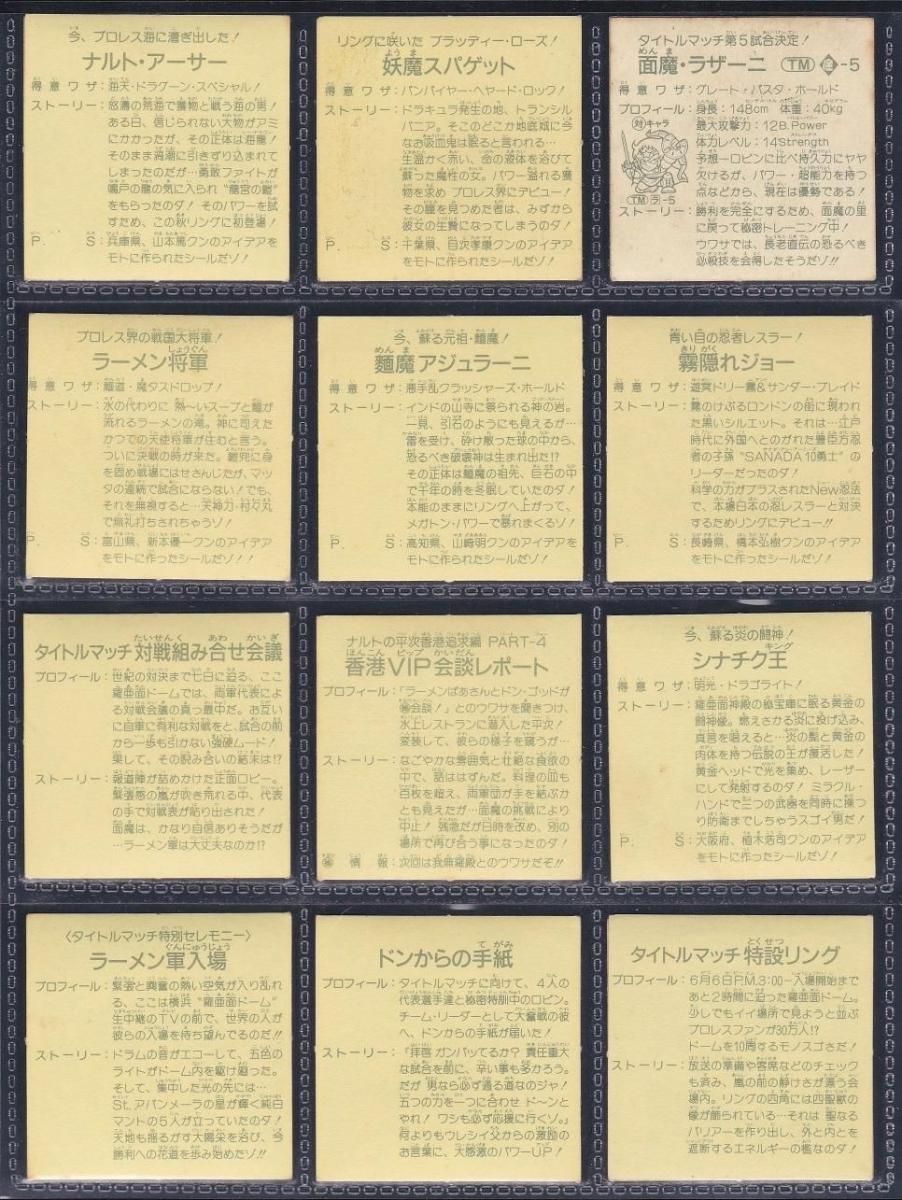 今、プロレス海に漕ぎ出した!
ナルト・アーサー
得意ワザ:海天・ドラグーン・スペシャル!
ストーリー:怒濤の荒海で獲物と戦う海の男!
ある日、信じられない大物がアミ
にかかったが、その正体は海龍!
そのまま渦潮に引きずり込まれて
しまったのだが…勇敢ファイトが
鳴戸の龍の気に入られ“龍宮の鎧”
をもらったのダ! そのパワーを試
すため、この秋リングに初登場!
P. S:兵庫県、山本篤クンのアイデアを
モトに作られたシールだゾ!
リングに咲いた ブラッディー・ローズ!
妖魔スパゲット
得意ワザ:バンパイヤー・ヘヤード・ロック!
ストーリー:ドラキュラ発生の地、トランシル
バニア。そこのどこか地底城に今
なお吸血鬼は眠ると言われる…
生温かく赤い、命の液体を浴びて
蘇った魔性の女。パワー溢れる獲
物を求め プロレス界にデビュー!
その瞳を見つめた者は、みずから
彼女の生贄になってしまうのダ!
P. S:千葉県、目次孝康クンのアイデア
をモトに作られたシールだゾ!
タイトルマッチ第5試合決定!
面魔・ラザーニ TM -5
得意ワザ:グレート・パスタ・ホールド
プロフィール:身長:148cm 体重:40kg
最大攻撃力:12B.Power
体力レベル:14Strength
予想―ロビンに比べ持久力にヤヤ
欠けるが、パワー・超能力を持つ
点などから、現在は優勢である!
対キャラ
TM ラ-5
ストーリー:勝利を完全にするため、面魔の里
に戻って秘密トレーニング中!
ウワサでは、長老直伝の恐るべき
必殺技を会得したそうだゾ!!
プロレス界の戦国大将軍!
ラーメン将軍
得意ワザ:麺道・魔タスドロップ!
ストーリー:水の代わりに 熱〜いスープと麺が
流れるラーメンの滝。神に司えた
かつての天使将軍が住むと言う。
ついに決戦の時が来た。鎧兜に身
を固め戦場にはせさんじたが、マッ
タの連続で試合にならない! でも、
それを無視すると…天神力・村々丸
で無礼打ちされちゃうゾ!
P. S:富山県、新本優一クンのアイデア
をモトに作ったシールだゾ!
今、蘇る元祖・麺魔!
麺魔アジュラーニ
得意ワザ:悪手乱クラッシャーズ・ホールド
ストーリー:インドの山寺に祭られる神の岩。
一見、引石のようにも見えるが…
雷を受け、砕け散った球の中から、
恐るべき破壊神は生まれ出た!?
その正体は麺魔の祖先、巨石の中
で千年の時を冬眠していたのダ!
本能のままにリングへ上がって、
メガトン・パワーで暴れまくるゾ!
P. S:高知県、山崎明クンのアイデアを
モトに作ったシールだゾ!
青い目の忍者レスラー!
霧隠れジョー
得意ワザ:遊巽ドリー霧&サンダー・ブレイド
ストーリー:霧のけぶるロンドンの街に現われ
た黒いシルエット。それは…江戸
時代に外国へとのがれた豊臣方忍
者の子孫“SANADA10勇士”の
リーダーだったのダ!
科学の力がプラスされたNew忍法
で、本場日本の忍レスラーと対決
するためリングにデビュー!!
P. S:長崎県、橋本弘樹クンのアイデア
をモトに作ったシールだゾ!
タイトルマッチ 対戦組み合せ会議
プロフィール:世紀の対決まで七日に迫る、ここ
羅亜面ドームでは、両軍代表によ
る対戦会議の真っ最中だ。お互い
に自軍に有利な対戦をと、試合の前
から一歩も引かない強硬ムード!
果して、その睨み合いの結末は!?
ストーリー:報道陣が詰めかけた正面ロビー。
緊張感の嵐が吹き荒れる中、代表
の手で対戦表が貼り出された!
面魔は、かなり自信ありそうだが
…ラーメン軍は大丈夫なのか!?
ナルトの平次香港追求編 PART-4
香港VIP会談レポート
プロフィール:「ラーメンばあさんとドン・ゴッドが
㊙会談!」とのウワサを聞きつけ、
水上レストランに潜入した平次!
変装して、彼らの様子を窺うが…
ストーリー:なごやかな雰囲気と壮絶な食欲の
中で、話ははずんだ。料理の皿も
百枚を超え、両軍団が手を結ぶか
とも見えたが…面魔の挑戦により
中止! 残念だが日時を改め、別の
場所で再び合う事になったのダ!
㊙情報:次回は我無羅殿とのウワサだぞ!!
今、蘇る炎の闘神!
シナチク王
得意ワザ:明光・ドラゴライト!
ストーリー:羅亜面神殿の秘宝庫に眠る黄金の
闘神像。燃えさかる炎に投げ込み、
真言を唱えると…炎の髪と黄金の
肉体を持つ伝説の王が復活した!
黄金ヘッドで光を集め、レーザー
にして発射するのダ! ミラクル・
ハンドで三つの武器を同時に操つ
り防衛までしちゃうスゴイ男だ!
P. S:大阪府、植木浩司クンのアイデア
をモトに作られたシールだゾ!
〈タイトルマッチ特別セレモニー〉
ラーメン軍入場
プロフィール:緊張と興奮の熱い空気が入り乱れ
る、ここは横浜“羅亜面ドーム”
生中継のTVの前で、世界の人が
彼らの入場を待ち望んでるのだ!!
ストーリー:ドラムの音がエコーして、五色の
ライトがドーム内を駆け廻った。
そして、集中した光の先には…
St.アバンメーラの星が輝く純白
マントの5人が立っていたのダ!
天地も揺るがす大喝采を浴び、今
勝利への花道を歩み始めたゾ!!
ドンからの手紙
プロフィール:タイトルマッチに向けて、4人の
代表選手達と秘密特訓中のロビン。
チーム・リーダーとして大奮戦の彼
へ、ドンからの手紙が届いた!
ストーリー:「拝啓 ガンバッてるか? 責任重大
な試合を前に、辛い事も多かろう。
だが 男なら必ず通る道なのジャ!
五つの力を一つに合わせ ド〜ンと
やれ! ワシも必ず応援に行くゾ。」
何よりもウレシイ父からの激励の
お言葉に、大感激のパワーUP!
タイトルマッチ 特設リング
プロフィール:6月6日P.M.3:00―入場開始まで
あと2時間に迫った羅亜面ドーム。
少しでもイイ場所で見ようと並ぶ
プロレスファンが30万人!?
ドームを10周するモノスゴさだ!
ストーリー:放送の準備や客席などのチェック
も済み、嵐の前の静けさが漂う会
場内。リングの四角には四聖獣の
像が飾られている…それは 聖なる
バリアーを作り出し、外と内とを
遮断するエネルギーの檻なのダ!